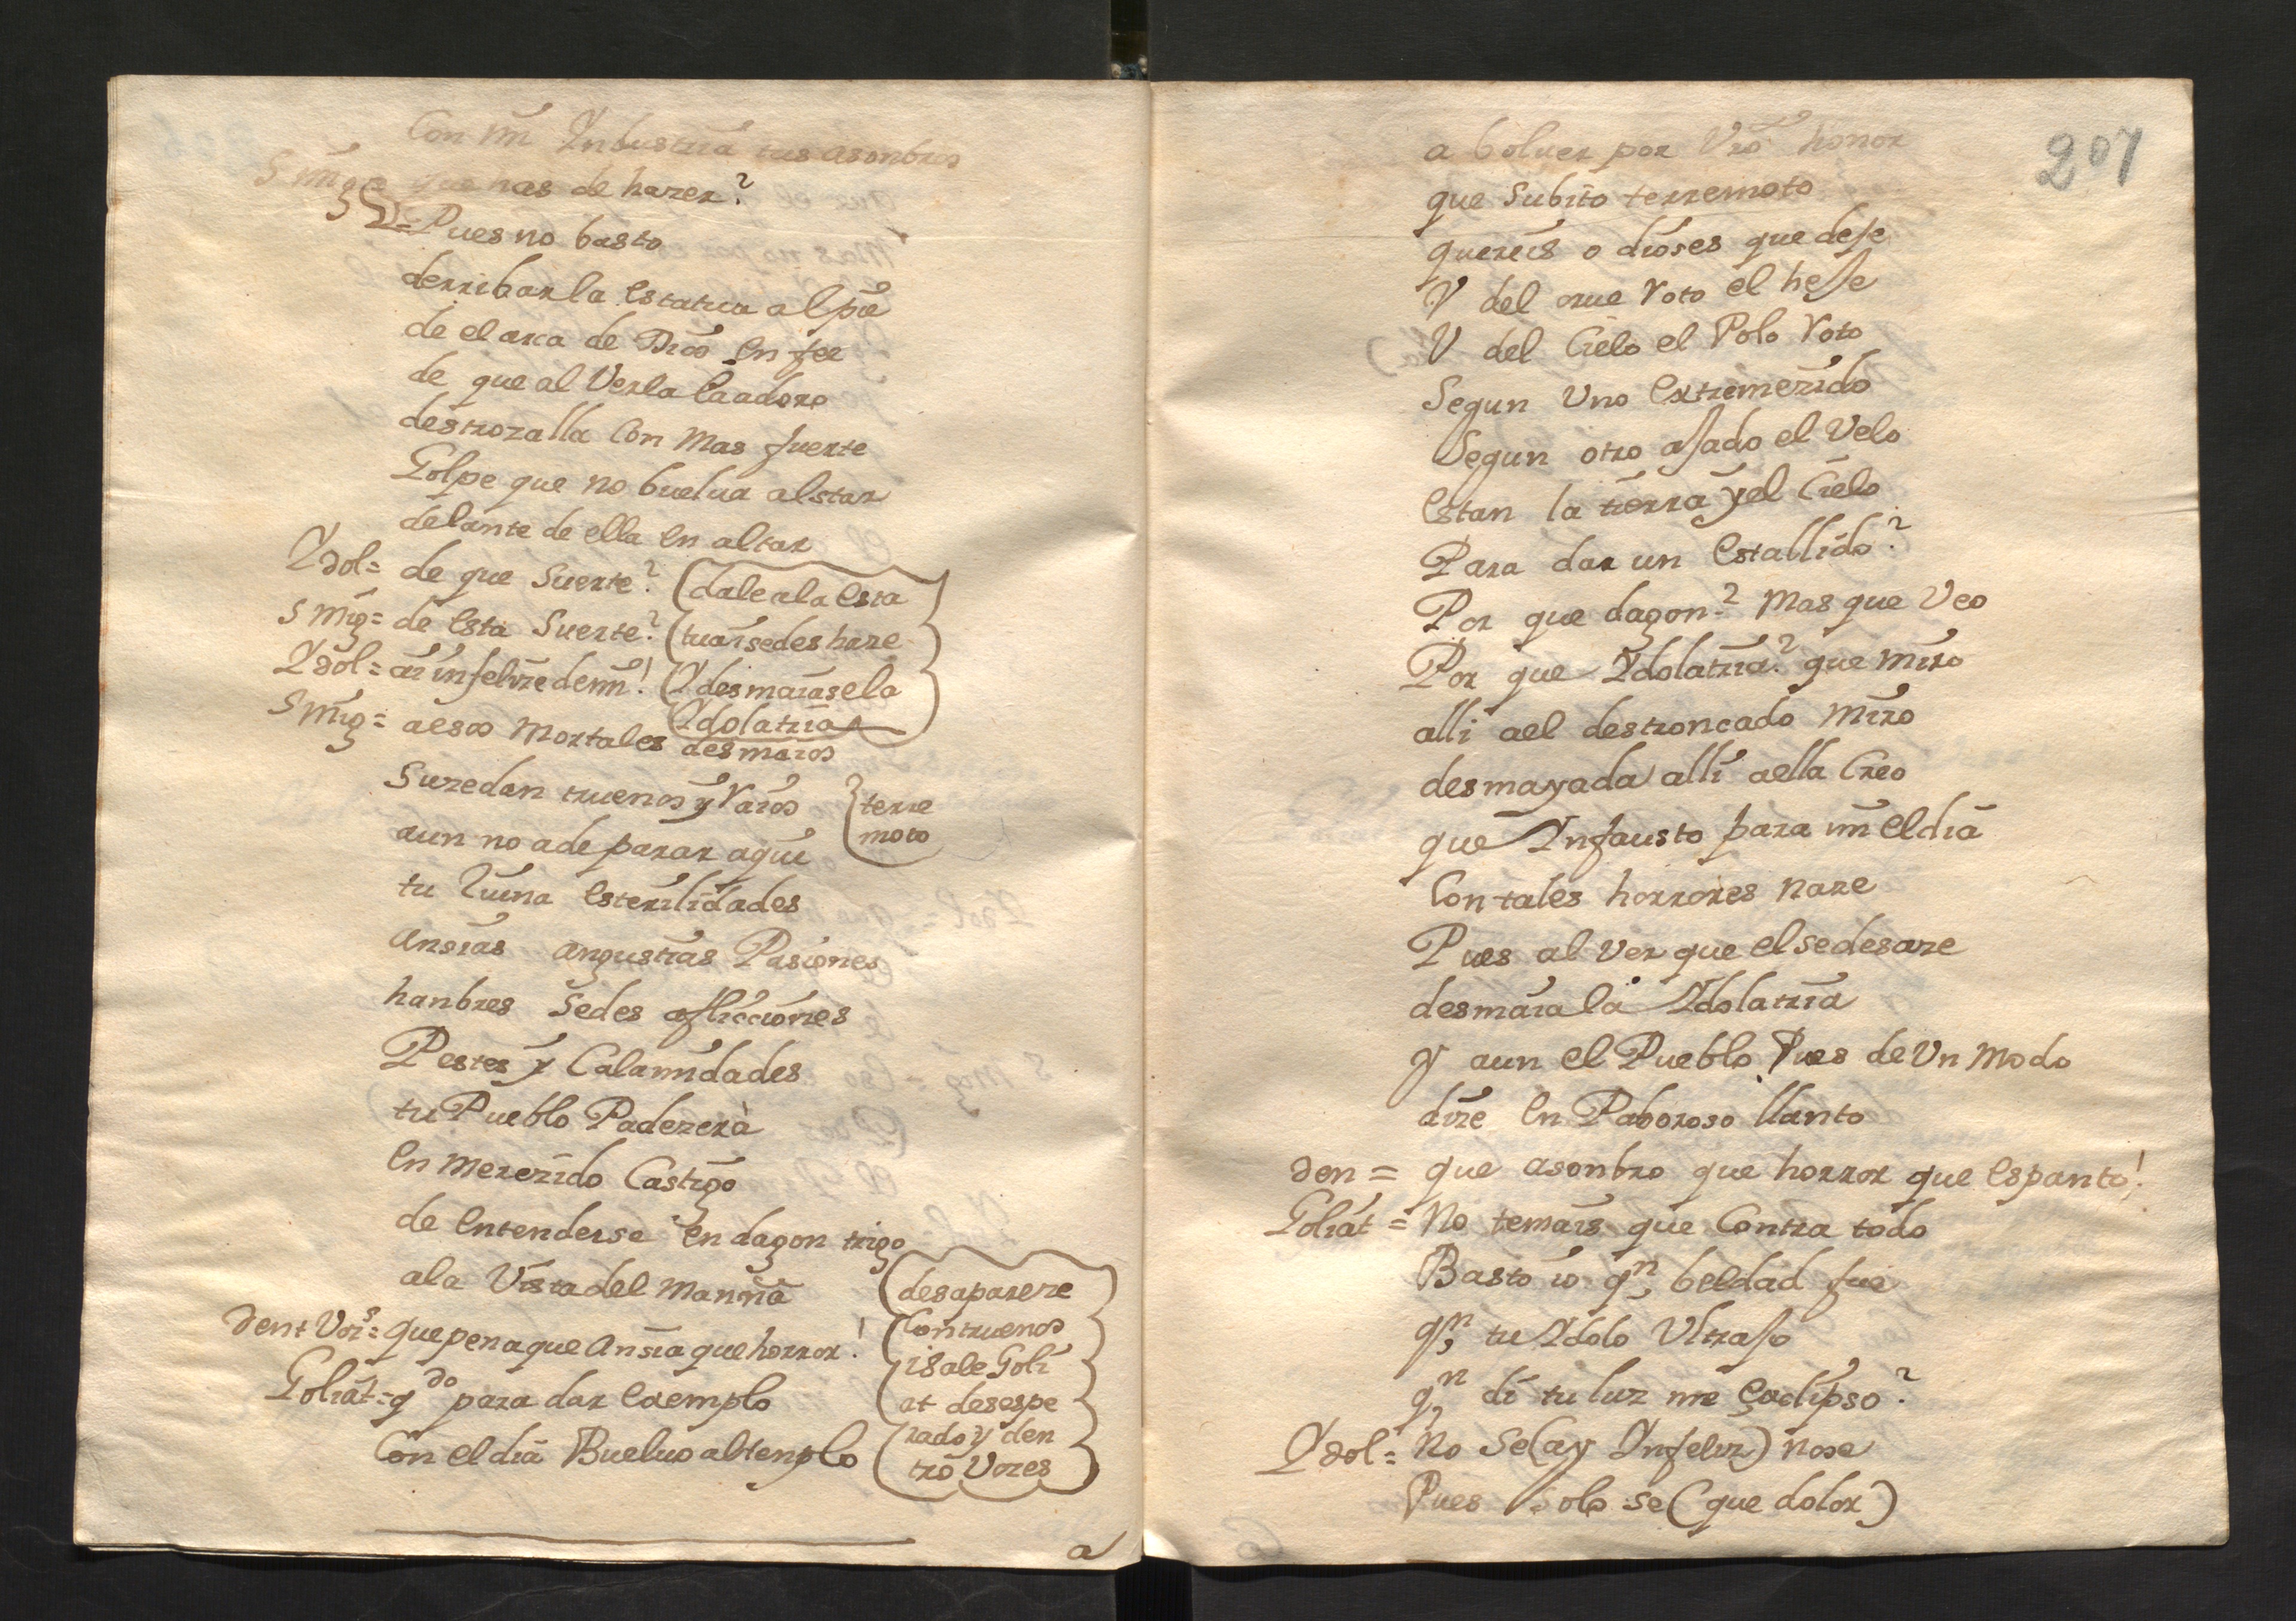 Con mi Yndustria tus asonbros
S mig= que has de hazer?
Pues no basto
derribar la estatua al pie
de el arca de Dios en fee
de que al Verla la adore
destrozalla Con mas fuerte
Golpe que no buelua alstar
delante de ella en altar
Ydol= de que Suerte? (dale ala esta
S Mig= de esta Suerte? (tua i se des haze
Ydol= ai infelize de mi! (Y desmaiase la
Ydolatria
S Mig= aesos Mortales desmaios
Suzedan truenos y raios {terre
moto
aun no a de parar aqui
tu Ruina esterilidades
Ansias angustias Pasiones
hanbres Sedes aflicciones
Pestes y Calamidades
tu Pueblo Padezerà
en merezido Castigo
de entenderse en dagon trigo
ala Vista del manná
(desapareze
Con truenos
i sale Goli
at desespe
rado y den
tro Vozes
dent Vozs= que pena que Ansia que horror!
Goliat= qdo para dar exemplo
Con el dia Bueluo al tenplo
a
207
a boluer por Vro honor
que Subito terremoto
quereis o dioses que deje
Y del orue roto el heje
V del Cielo el Polo roto
Segun Uno extremezido
Segun otro ajado el Velo
estan la tierra y el Cielo
Para dar un estallido?
Por que dagon? Mas que Veo
Por que Ydolatria? que miro
alli a el destroncado miro
desmayada alli a ella Creo
que Infausto para mi el dia
Con tales horrores naze
Pues al ver que el se desaze
desmaia la Ydolatria
y aun el Pueblo Pues de Un modo
dize en Paboroso llanto
den= que asonbro que horror que espanto!
Goliat= No temais que Contra todo
Basto io qn beldad fue
qn tu Ydolo Ultrajo
qn di tu luz me eclipso?
Ydol= No Se (ay Ynfeliz) no se
Pues solo se (que dolor)